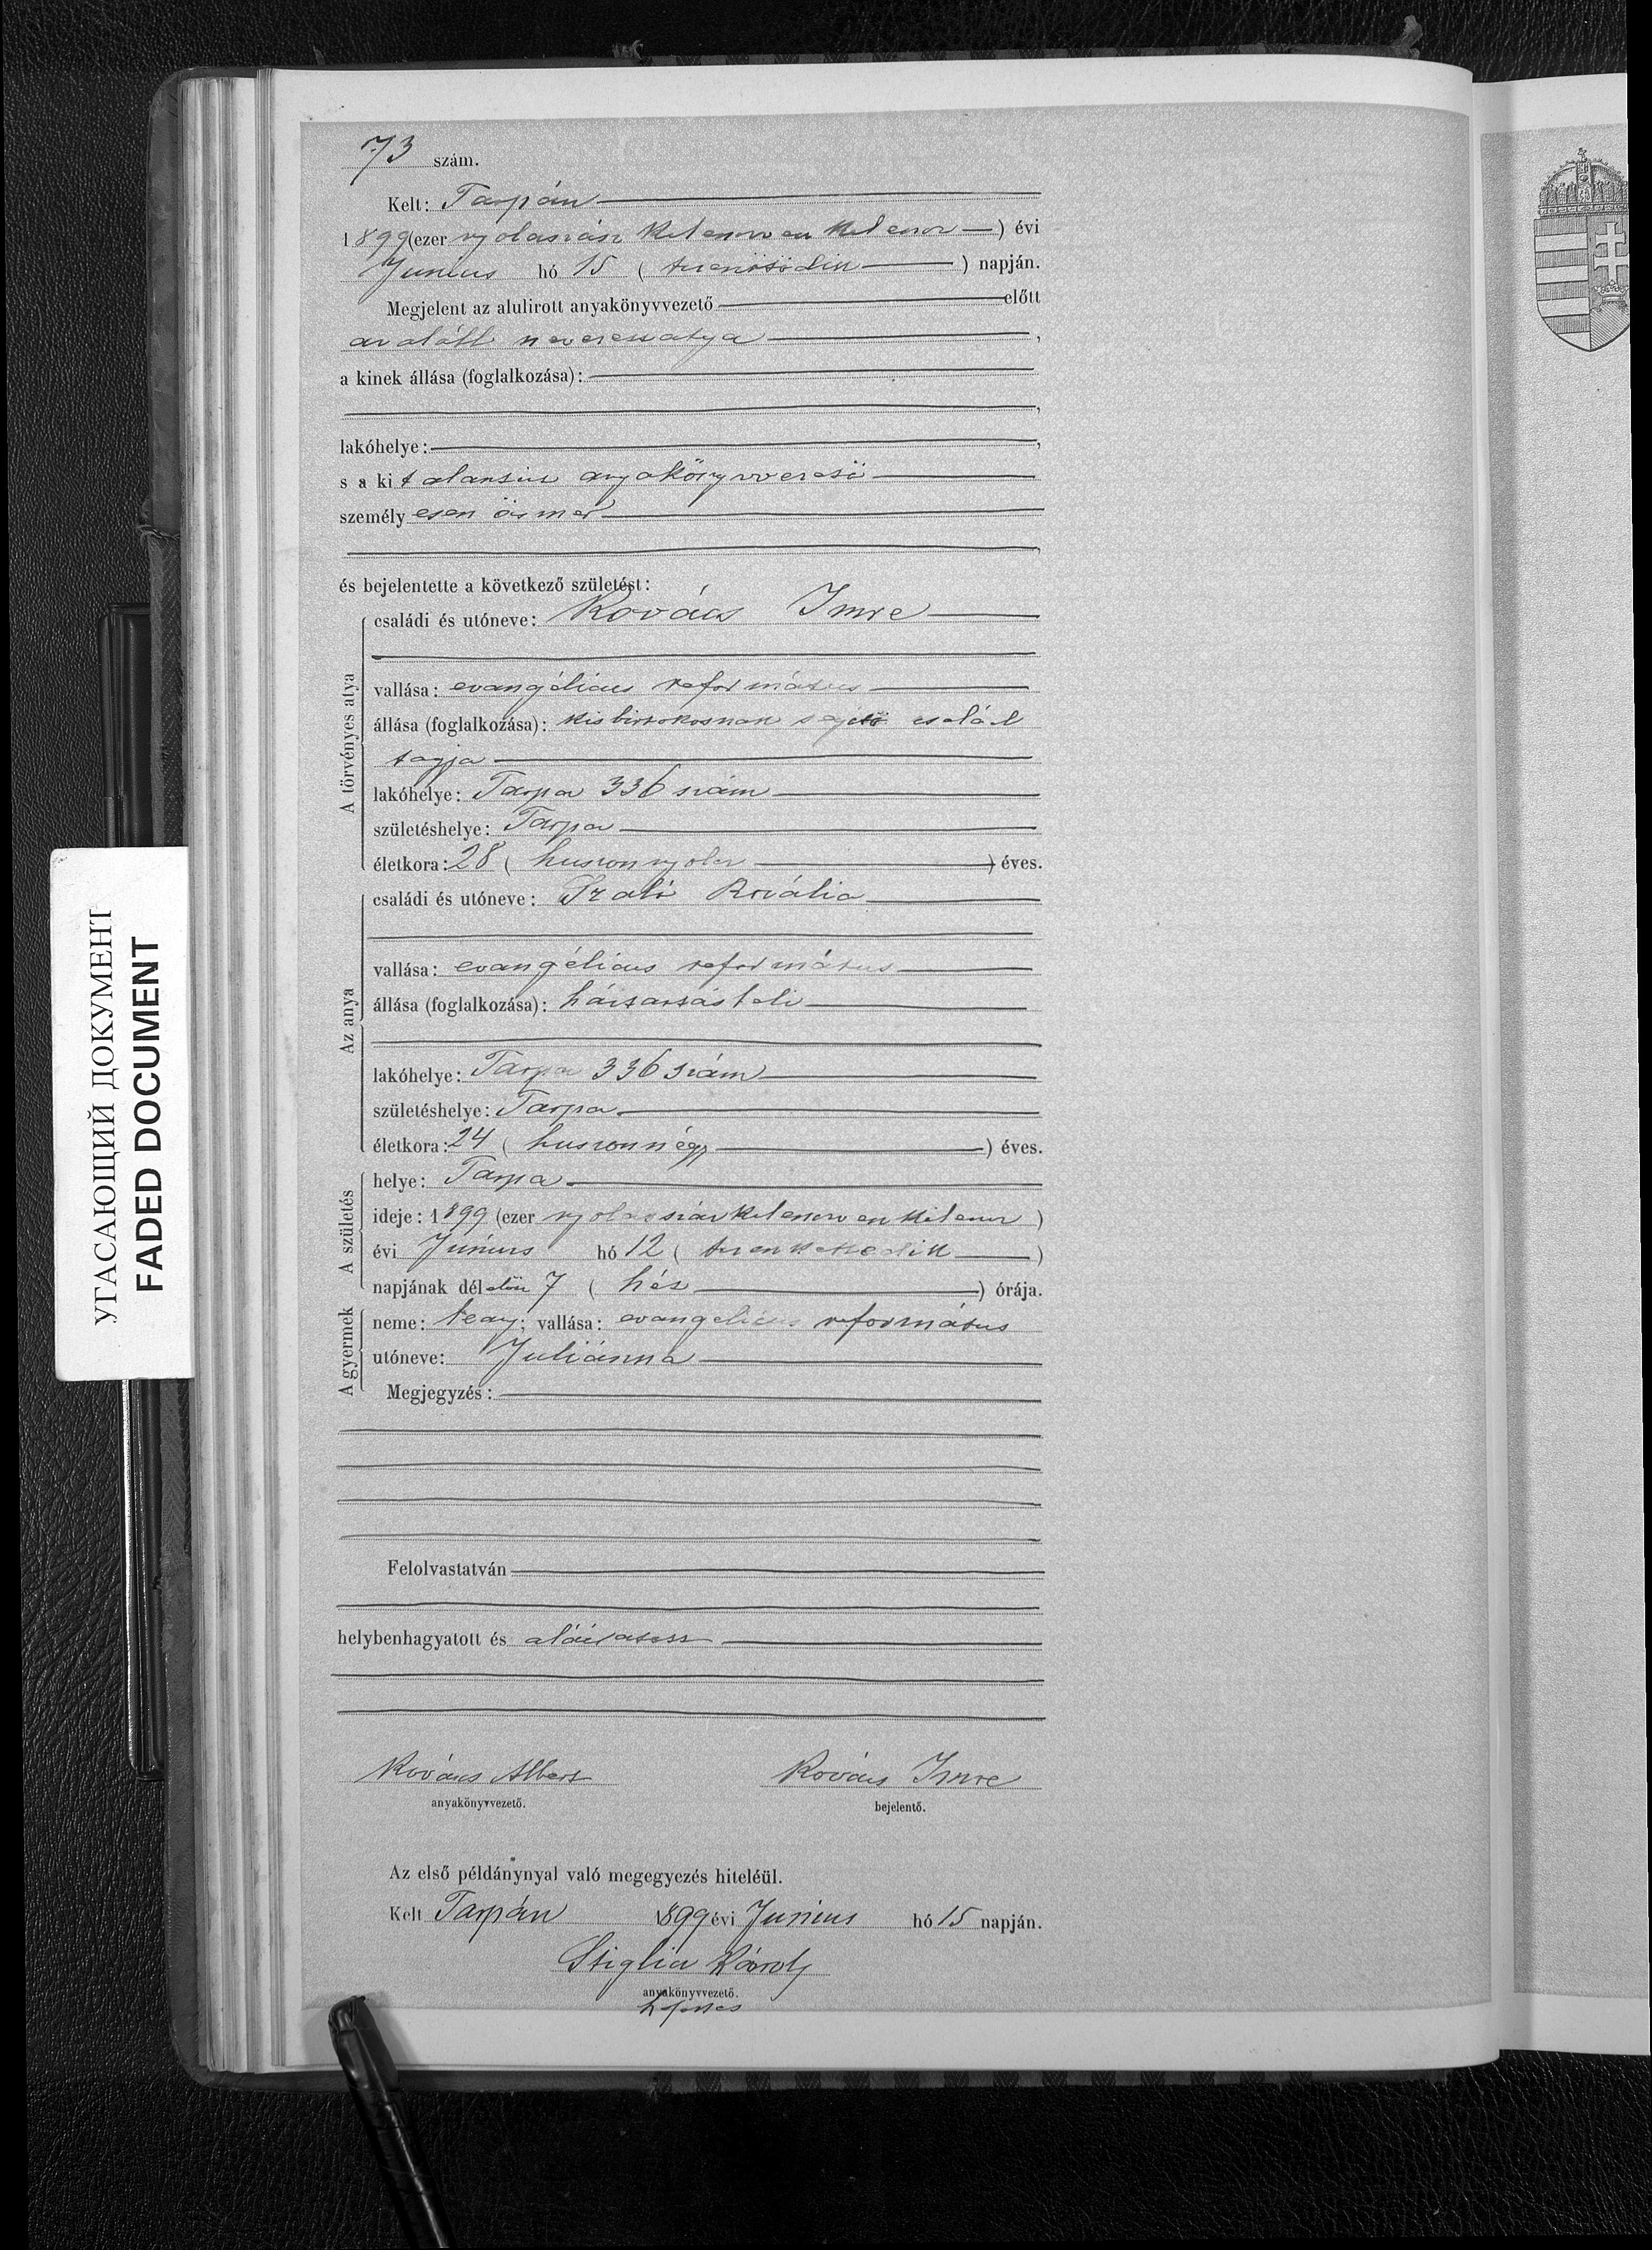 73 szám.
Kelt: Tarpán
1899 (ezer nyolczszáz kilenczven kilencz) évi
Junius hó 15 (tizenötödik) napján.
Megjelent az alulirott anyakönyvvezető előtt
az alább nevezett atya,
a kinek állása (foglalkozása):
lakóhelye:
s a kit alantirt anyakönyvvezető
személyesen ösmer
és bejelentette a következő születést:
A törvényes atya
családi és utóneve: Kovács Imre
vallása: evangélicus református
állása (foglalkozása): kisbirtokosnak segitő család
tagja
lakóhelye: Tarpa 336 szám
születéshelye: Tarpa
életkora: 28 (huszonnyolcz) éves.
Az anya
családi és utóneve: Rozália
vallása: evangélicus református
állása (foglalkozása): háztartásbeli
lakóhelye: Tarpa 336 szám
születéshelye: Tarpa
életkora: 24 (huszonnégy) éves.
A születés
helye: Tarpa
ideje: 1899 (ezer nyolczszáz kilenczven kilencz)
évi Junius hó 12 (tizenkettedik)
napjának délelőtt 7 (hét) órája.
A gyermek
neme: leány; vallása: evangelicus református
utóneve: Juliánna
Megjegyzés:
Felolvastatván
helybenhagyatott és aláiratott
Kovács Albert Kovács Imre
anyakönyvvezető. bejelentő.
Az első példánynyal való megegyezés hiteléül.
Kelt Tarpán 1899 évi Junius hó 15 napján.
Károly
anyakönyvvezető.
helyettes
УГАСАЮЩИЙ ДОКУМЕНТ
FADED DOCUMENT